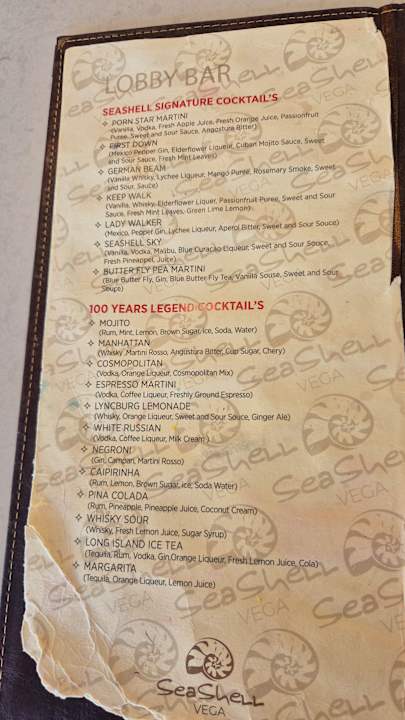 LOBBY BAR
SEASHELL SIGNATURE COCKTAIL'S
PORN STAR MARTINI
(Vanilla, Vodka, Fresh Apple Juice, Fresh Orange Juice, Passionfruit
Puree, Sweet and Sour Sauce, Angostura Bitter)
FIRST DOWN
(Mexico Pepper Gin, Elderflower Liqueur, Cuban Mojito Sauce, Sweet
and Sour Sauce, Fresh Mint Leaves)
GERMAN BEAM
(Vanilla Whisky, Lychee Liqueur, Mango Puree, Rosemary Smoke, Sweet
and Sour, Sauce)
KEEP WALK
(Vanilla, Whisky, Elderflower Liquer, Passionfruit Puree, Sweet and Sour
Sauce, Fresh Mint Leaves, Green Lime Lemon)
LADY WALKER
(Mexico, Pepper Gin, Lychee Liqueur, Aperol Bitter, Sweet and Sour Souce)
SEASHELL SKY
(Vanilla, Vodka, Malibu, Blue Curaçao Liqueur, Sweet and Sour Souce,
Fresh Pineappel, Juice)
BUTTER FLY PEA MARTINI
(Blue Butter Fly, Gin, Blue Butter Fly Tea, Vanilla Souse, Sweet and Sour
Souce)
100 YEARS LEGEND COCKTAIL'S
MOJITO
(Rum, Mint, Lemon, Brown Sugar, Ice, Soda, Water)
MANHATTAN
(Whisky, Martini Rosso, Angustura Bitter, Cup Sugar, Chery)
COSMOPOLITAN
(Vodka, Orange Liqueur, Cosmopolitan Mix)
ESPRESSO MARTINI
(Vodka, Coffee Liqueur, Freshly Ground Espresso)
LYNCBURG LEMONADE
(Whisky, Orange Liqueur, Sweet and Sour Souce, Ginger Ale)
WHITE RUSSIAN
(Vodka, Coffee Liqueur, Milk Cream)
NEGRONI
(Gin, Campari, Martini Rosso)
CAIPIRINHA
(Rum, Lemon, Brown Sugar, Ice, Soda Water)
PINA COLADA
(Rum, Pineapple, Pineapple Juice, Coconut Cream)
WHISKY SOUR
(Whisky, Fresh Lemon Juice, Sugar Syrup)
LONG ISLAND ICE TEA
(Tequila, Rum, Vodka, Gin, Orange Liqueur, Fresh Lemon Juice, Cola)
MARGARITA
(Tequila, Orange Liqueur, Lemon Juice)
SeaShell
VEGA